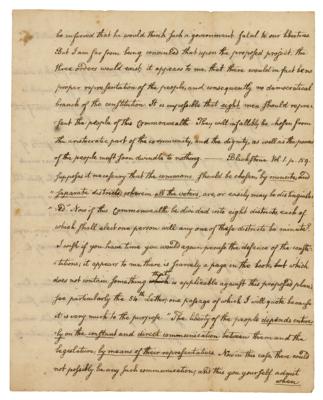 be inferred that he would think such a government fatal to our liberties.
But I am far from being convinced that upon the proposed project, the
three orders would exist, it appears to me, that there would in fact be no
proper representation of the people, and consequently no democratical
branch of the constitution. It is impossible that eight men should repre-
sent the people of this Commonwealth. They will infallibly be chosen from
the aristocratic part of the community, and the dignity, as well as the power
of the people must soon dwindle to nothing. — Blackstone Vol 1. p. 159.
supposes it necessary that the commons should be chosen "by minute and
"separate districts, wherein all the voters, are, or easily may be distinguish-
"ed." Now if this Commonwealth be divided into eight districts each of
which shall elect one person, will any one of those districts be minute?
I wish if you have time you would again peruse the defence of the consti-
tutions; it appears to me there is scarcely a page in the book, but which
does not contain something that is applicable against this proposed plan:
see particularly the 54th Letter, one passage of which I will quote because
it is very much to the purpose "The liberty of the people depends entire-
ly on the constant and direct communication between them and the
legislature, by means of their representatives. Now in this case there could
not possibly be any such communication, and this you yourself admit
when